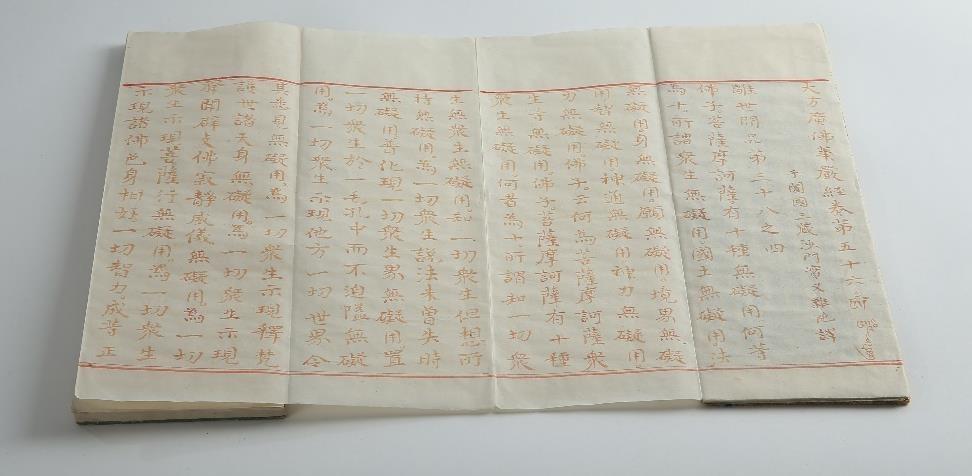 大方廣佛華嚴經卷第五十六
于闐國三藏沙門實叉難陀譯
離世間品第三十八之四
佛子菩薩摩訶薩有十種無礙用何等
為十所謂衆生無礙用國土無礙用法
無礙用身無礙用願無礙用境界無礙
用智無礙用神通無礙用神力無礙用
力無礙用佛子云何為菩薩摩訶薩衆
生等無礙用佛子菩薩摩訶薩有十種
衆生無礙用何者為十所謂知一切衆
生無衆生無礙用知一切衆生但想所
持無礙用為一切衆生說法未曾失時
無礙用普化現一切衆生界無礙用置
一切衆生於一毛孔中而不迫隘無礙
用為一切衆生示現他方一切世界令
其悉見無礙用為一切衆生示現釋梵
護世諸天身無礙用為一切衆生示現
聲聞辟支佛寂靜威儀無礙用為一切
衆生示現菩薩行無礙用為一切衆生
示現諸佛色身相好一切智力成等正